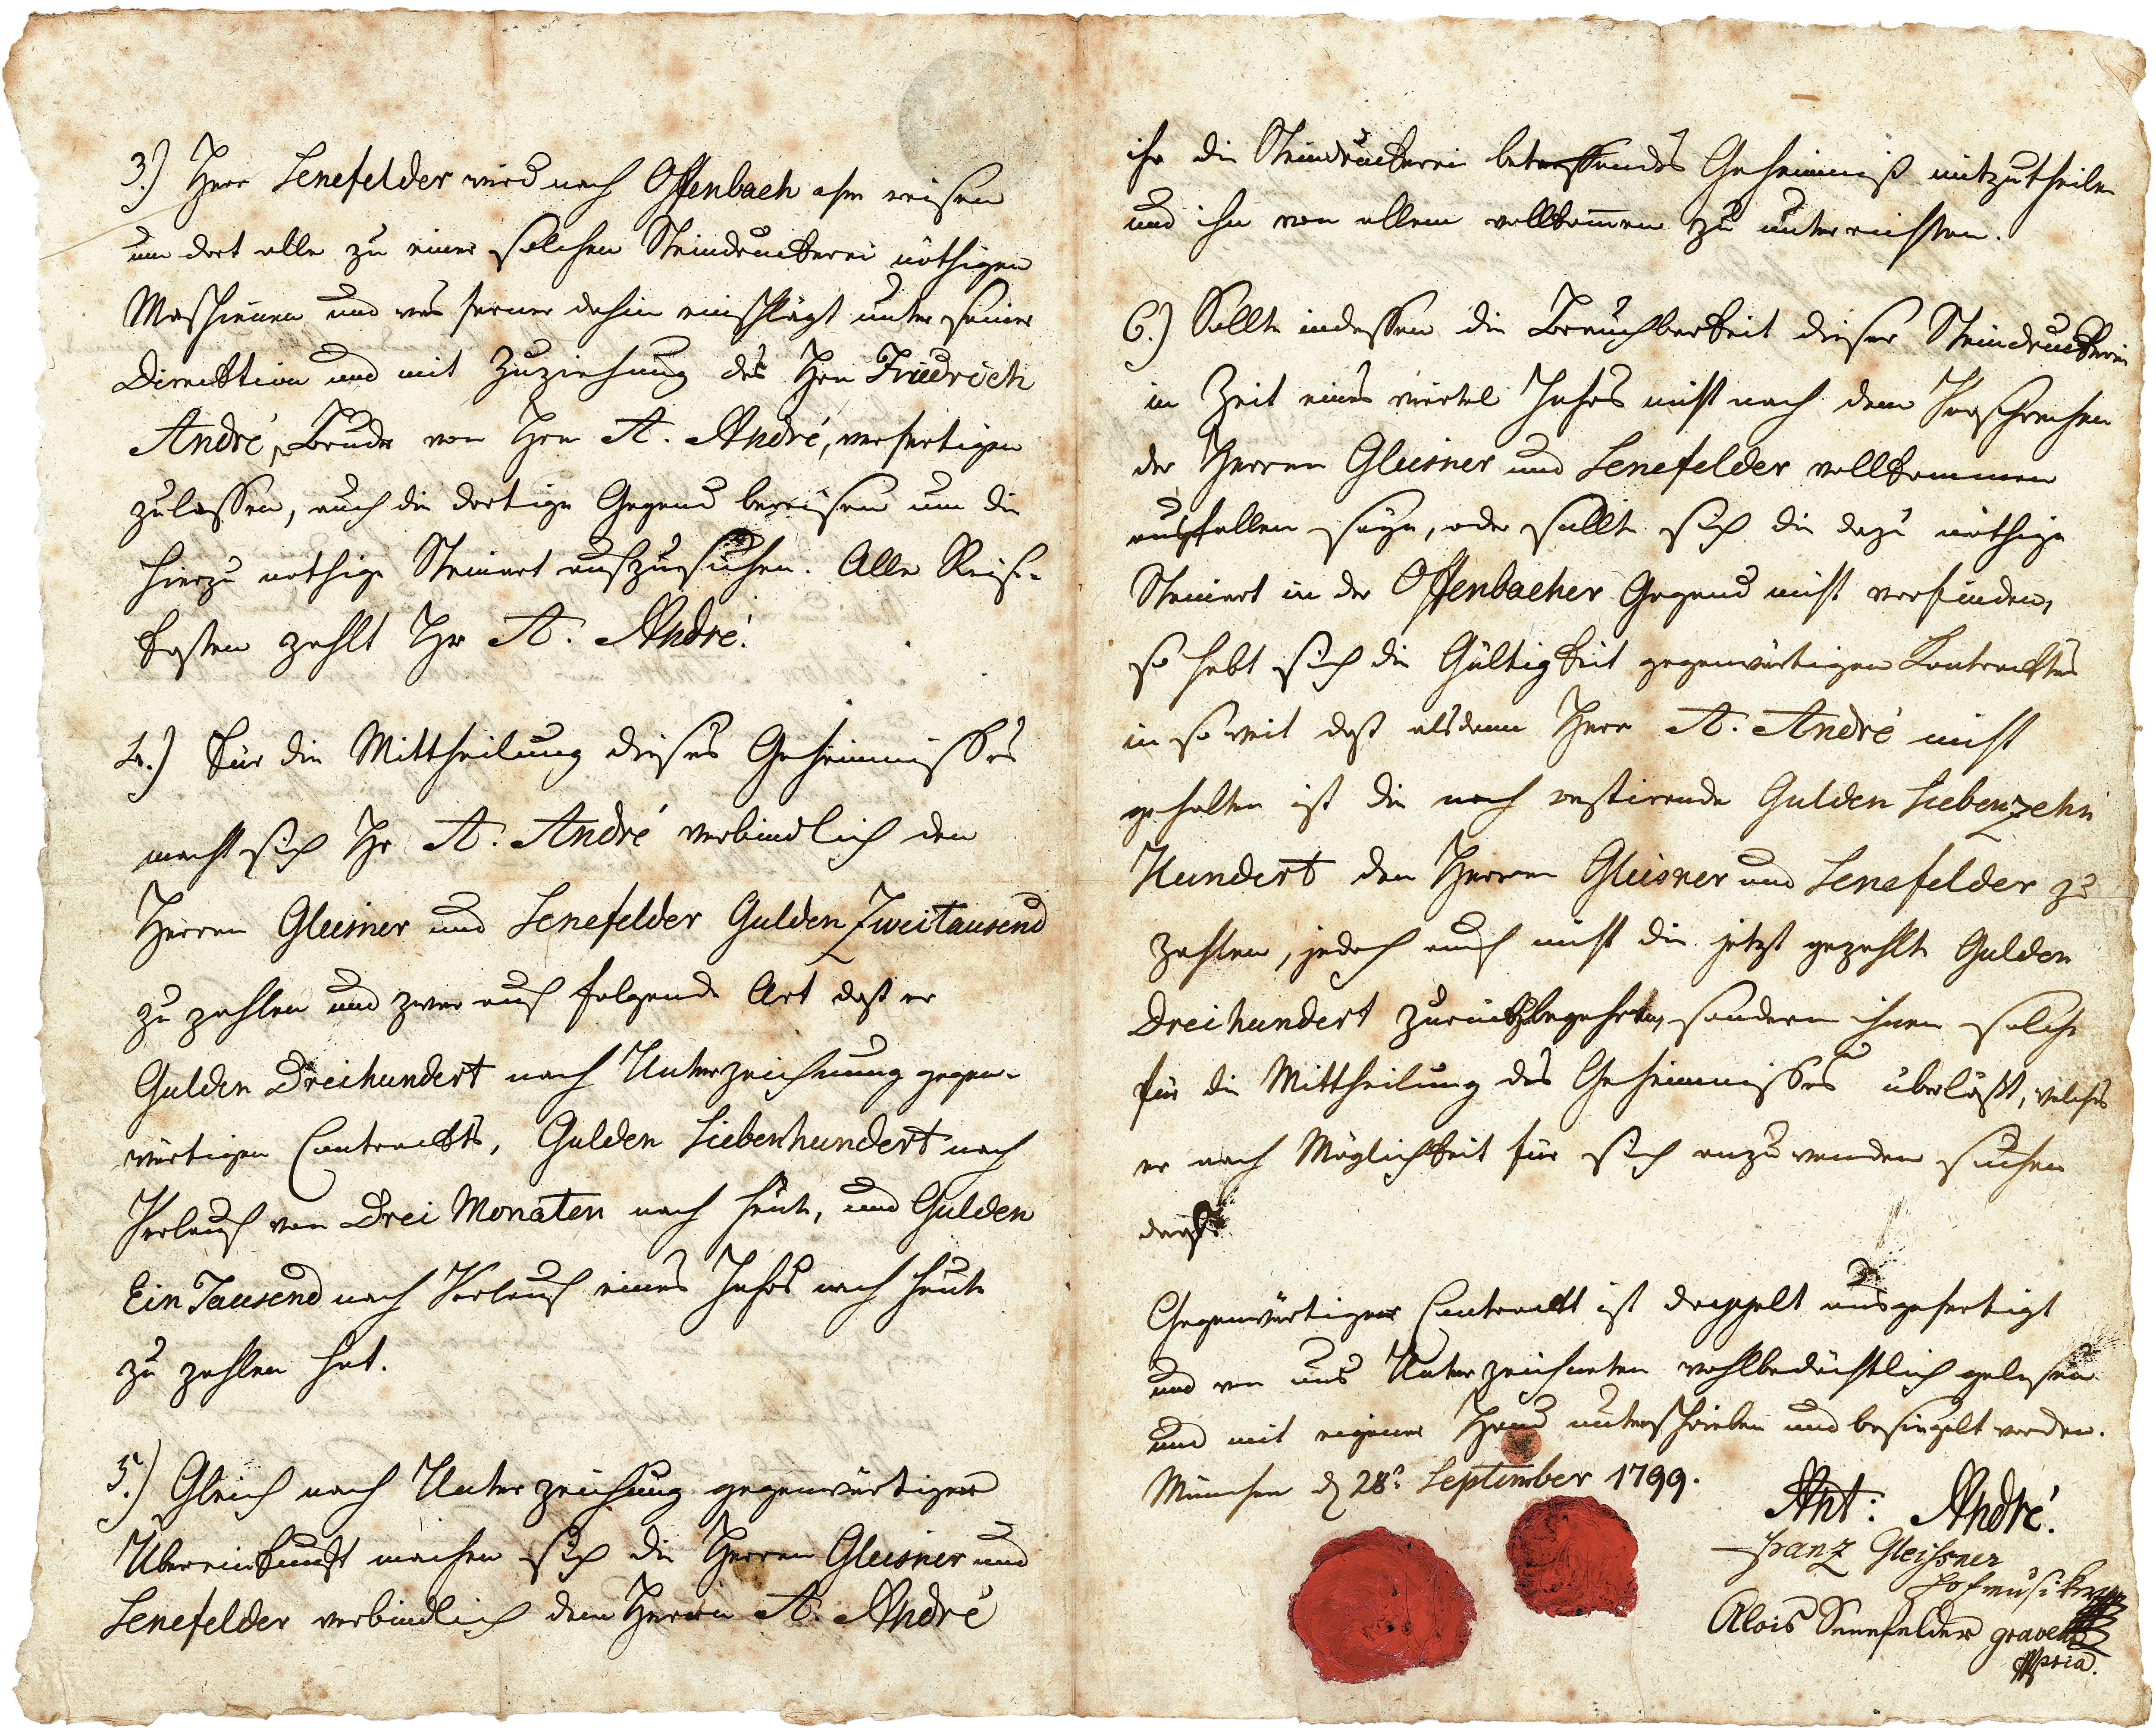 3.) Herr Senefelder wird nach Offenbach a/m reisen
um dort alle zu einer solchen Steindruckerei nöthigen
Maschienen und was ferner dahin einschlägt unter seiner
Direcktion und mit Zuziehung des Hrn Friedrich
André, Bruder von Hrn A. André, verfertigen
zulassen, auch die dortige Gegend bereisen um die
hierzu nothige Steinart aufzusuchen. Alle Reise-
kosten zahlt Hr A. André.
4.) Für die Mittheilung dieses Geheimnisses
macht sich Hr A. André verbindlich den
Herren Gleisner und Senefelder Gulden Zweitausend
zu zahlen und zwar auf folgende Art daß er
Gulden Dreihundert nach Unterzeichnung gegen-
wärtigen Contrackts, Gulden Siebenhundert nach
Verlauf von Drei Monaten nach heute, und Gulden
Ein Tausend nach Verlauf eines Jahrs nach heute
zu zahlen hat.
5.) Gleich nach Unterzeichnung gegenwärtiger
Übereinkunft machen sich die Herren Gleisner und
Senefelder verbindlich dem Herrn A. André
ihr die Steindruckerei betreffendes Geheimniß mitzutheilen
und ihn von allem vollkom̅en zu unterrichten.
6.) Sollte indessen die Brauchbarkeit dieser Steindruckerei
in Zeit eines viertel Jahrs nicht nach dem Versprechen
der Herren Gleisner und Senefelder vollkommen
ausgefallen seyn, oder sollte sich die dazu nöthige
Steinart in der Offenbacher Gegend nicht vorfinden,
so hebt sich die Gültigkeit gegenwärtigen Kontracktes
in so weit daß alsdann Herr A. André nicht
gehalten ist die noch restirende Gulden Siebenzehn
Hundert den Herren Gleisner und Senefelder zu
zahlen, jedoch auch nicht die jetzt gezahlte Gulden
Dreihundert zurückbegehrt, sondern ihnen solche
für die Mittheilung des Geheimnisses überläßt, welches
er nach Möglichkeit für sich anzuwenden suchen
darf.
Gegenwärtiger Contrackt ist doppelt ausgefertigt
und von uns Unterzeichneten wohlbedächtlich gelesen
und mit eigener Hand unterschrieben und besiegelt worden.
München d 28º September 1799.
Ant: André.
Franz Gleißner
Hofmusiker
Alois Senefelder